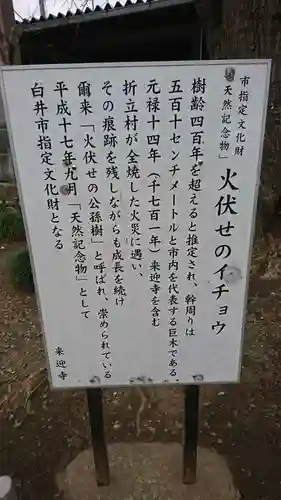 市指定文化財
「天然記念物」
火伏せのイチョウ
樹齢四百年を超えると推定され、幹周りは
五百十センチメートルと市内を代表する巨木である。
元禄十四年（千七百一年）来迎寺を含む
折立村が全焼した火災に遭い、
その痕跡を残しながらも成長を続け
爾来「火伏せの公孫樹」と呼ばれ、崇められている
平成十七年九月「天然記念物」として
白井市指定文化財となる
来迎寺